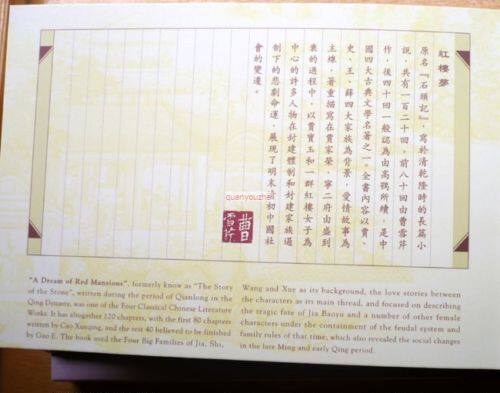 紅樓夢
原名『石頭記』，寫於清乾隆時的長篇小
說，共有一百二十回，前八十回由曹雪芹
作，後四十回一般認為由高鶚所續，是中
國四大古典文學名著之一。全書內容以賈、
史、王、薛四大家族為背景，愛情故事為
主線，著重描寫在賈家榮、寧二府由盛到
衰的過程中，以賈寶玉和一群紅樓女子為
中心的許多人物在封建體制和封建家族遏
制下的悲劇命運，展現了明末清初中國社
會的變遷。
曹雪芹
"A Dream of Red Mansions", formerly know as "The Story
of the Stone", written during the period of Qianlong in the
Qing Dynasty, was one of the Four Classical Chinese Literature
Works. It has altogether 120 chapters, with the first 80 chapters
written by Cao Xueqing, and the rest 40 believed to be finished
by Gao E. The book used the Four Big Families of Jia, Shi,
Wang and Xue as its background, the love stories between
the characters as its main thread, and focused on describing
the tragic fate of Jia Baoyu and a number of other female
characters under the containment of the feudal system and
family rules of that time, which also revealed the social changes
in the late Ming and early Qing period.